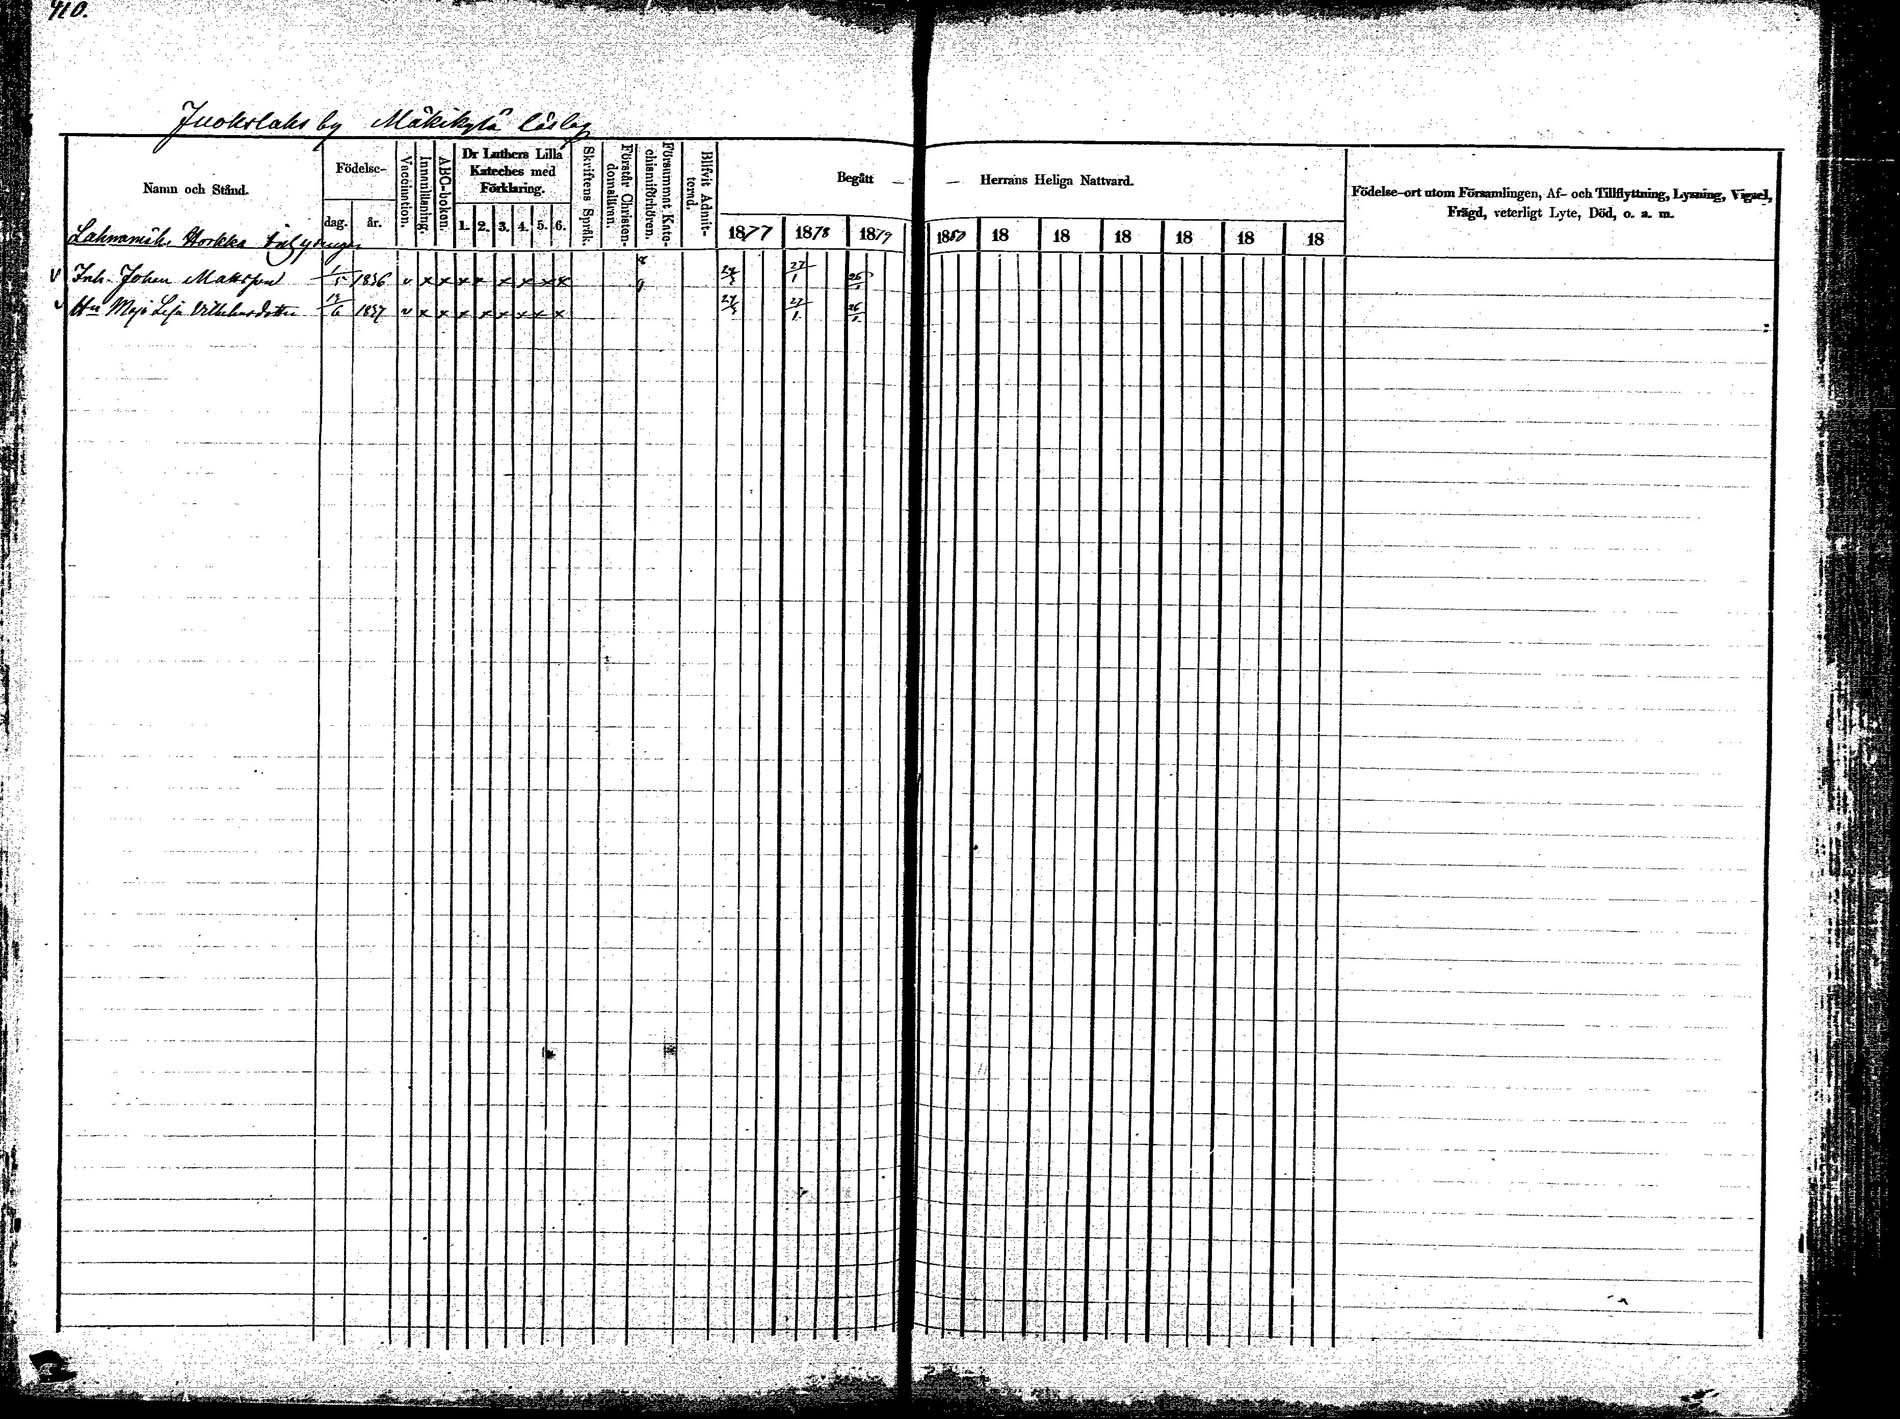 410.
Juokslaks by Mäkikylä läslag
Namn och Stånd.
Födelse-
dag.
år.
Vaccination.
Innanläsning.
ABC-boken.
Dr Luthers Lilla
Kateches med
Förklaring.
1. 2. 3. 4. 5. 6.
Skriftens Språk.
Förstår Christen-
domsläran.
Försummat Kate-
chismiförhören.
Blifvit Admit-
terad.
Begått — — Herrans Heliga Nattvard.
1877 1878 1879 1880 18 18 18 18 18 18
Födelse-ort utom Församlingen, Af- och Tillflyttning, Lysning, Vigsel,
Frägd, veterligt Lyte, Död, o. a. m.
v Inh. Johan 1/5 1836 v x x x x x x x x 9 27/1
v Hu Maja Lisa Vilhelmsdotter 1837 v x x x x x x x x 27/1 26/1